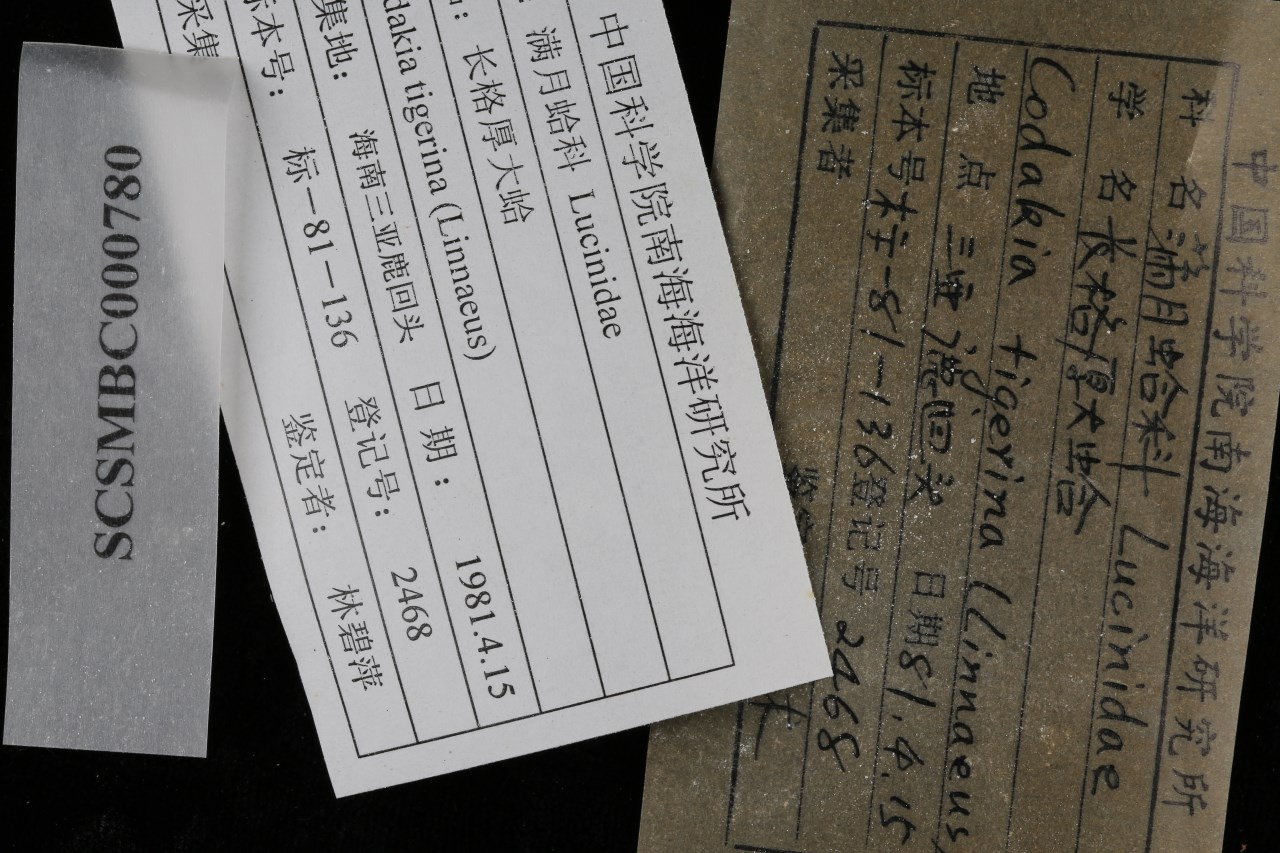 SCSMBC000780
中国科学院南海海洋研究所
满月蛤科 Lucinidae
长格厚大蛤
dakia tigerina (Linnaeus)
集地: 海南三亚鹿回头 日期: 1981.4.15
标本号: 标-81-136 登记号: 2468
采集 鉴定者: 林碧萍
中国科学院南海海洋研究所
科 名 满月蛤科 Lucinidae
学 名 长格厚大蛤
Codakia tigerina (Linnaeus)
地 点 三亚 回头 日期 81.4.15
标本号 标-81-136 登记号 2468
采集者